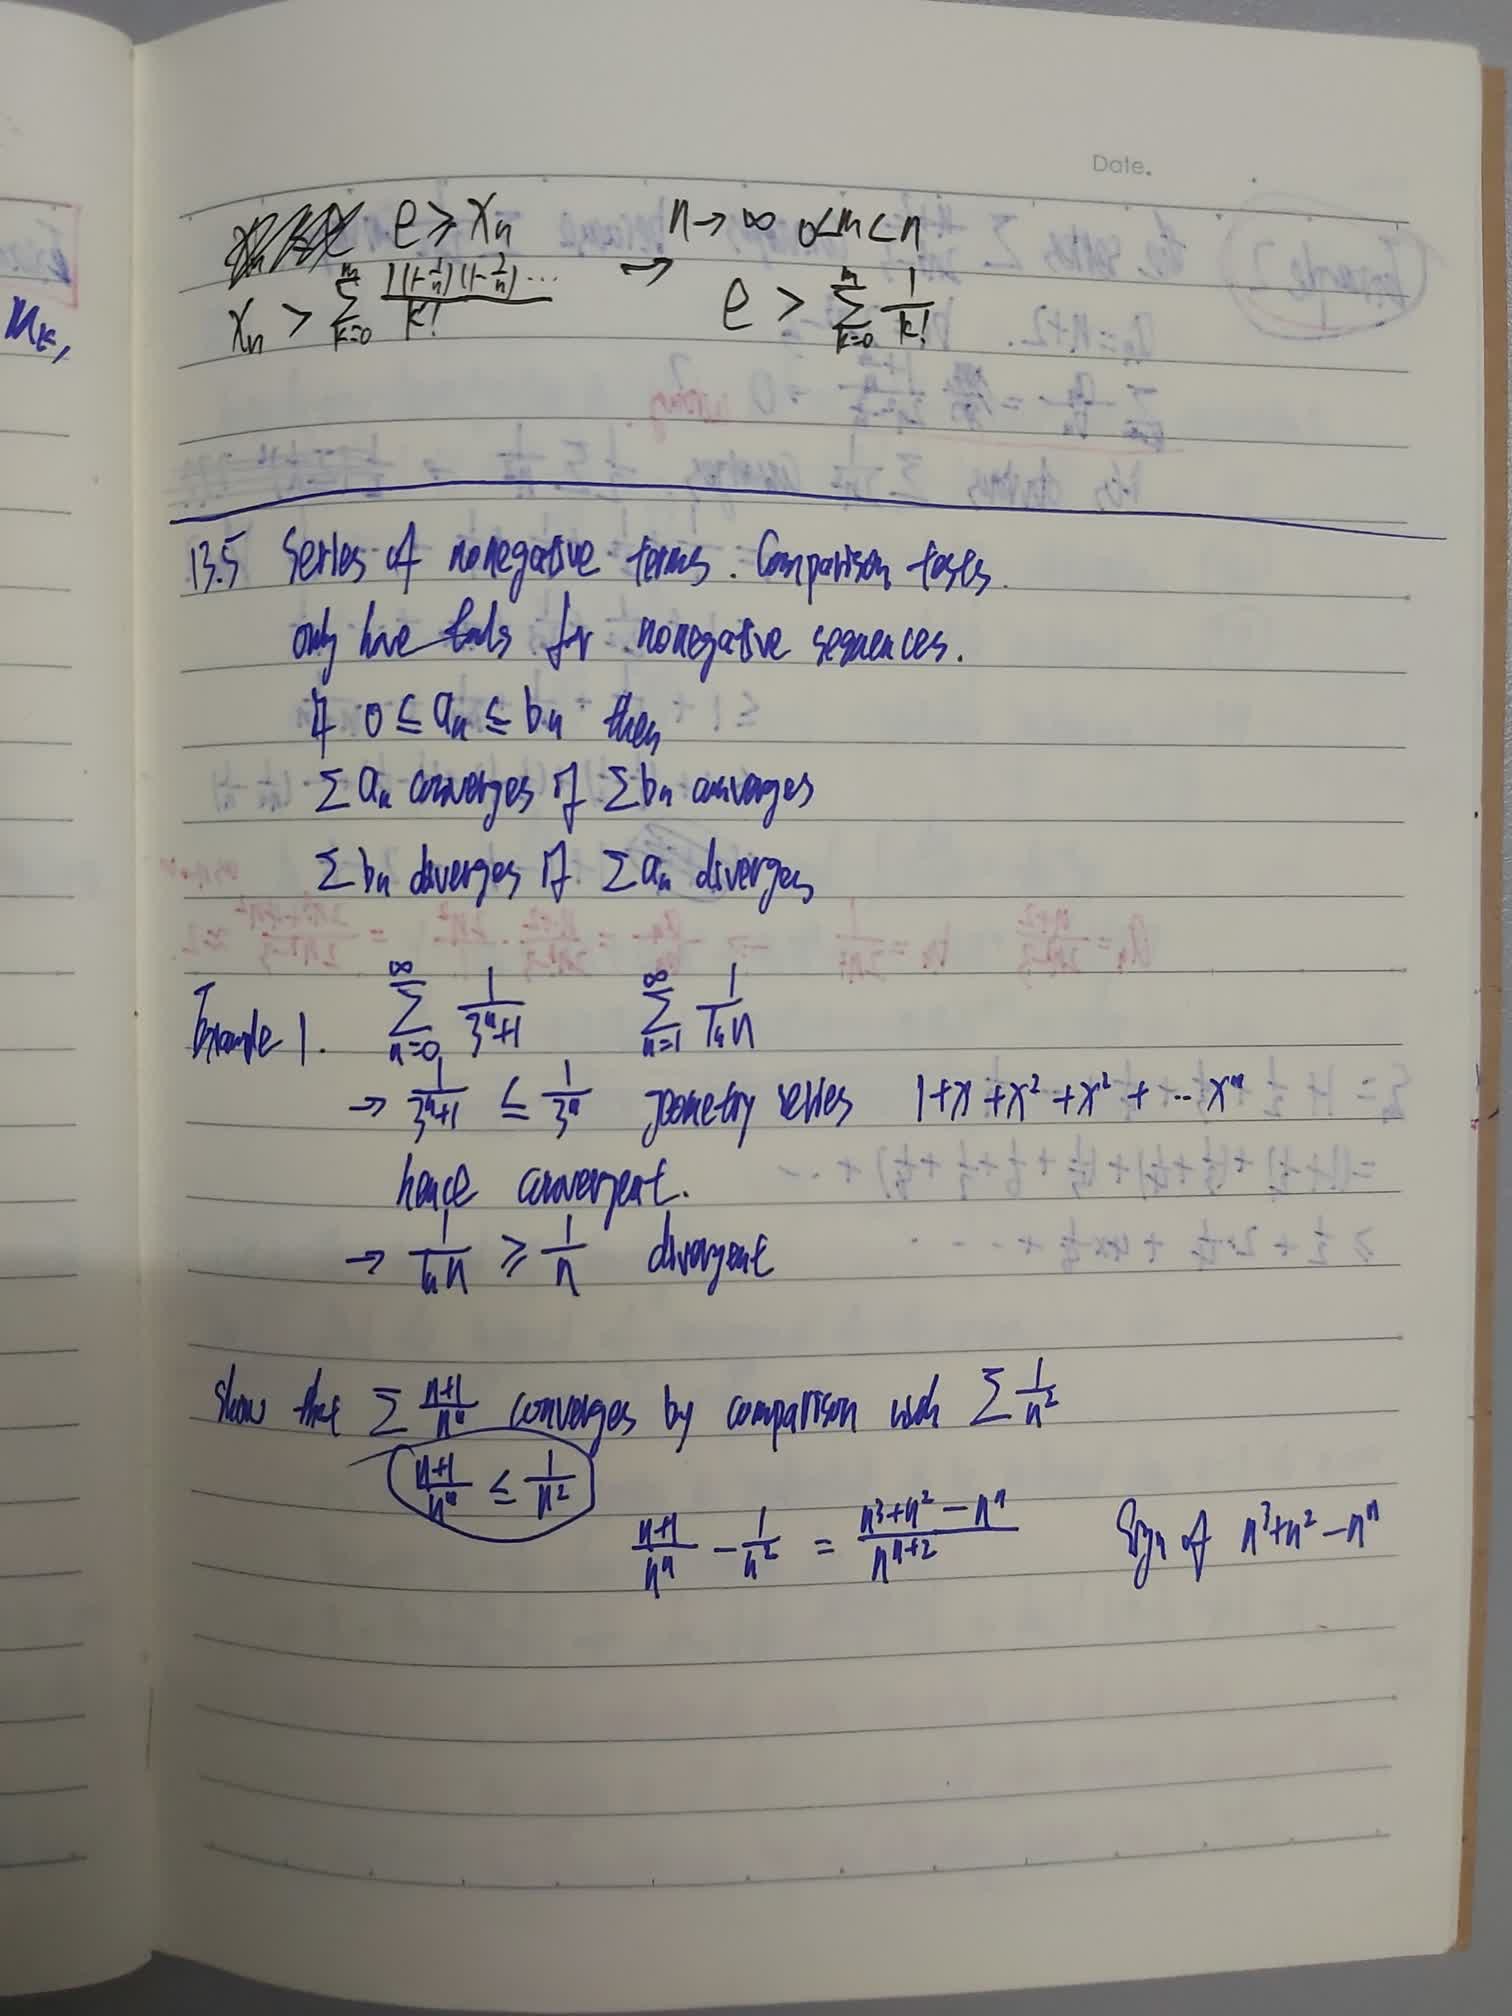 Date.
e ≥ xₙ n → ∞ 0<m<n
xₙ > ∑_{k=0}^{m} 1(1-1/n)(1-2/n)… / k! → e > ∑_{k=0}^{m} 1/k!
mₖ,
13.5 Series of nonegative terms. Comparison tests.
only have tools for nonegative sequences.
if 0 ≤ aₙ ≤ bₙ then
∑ aₙ converges if ∑ bₙ converges
∑ bₙ diverges if ∑ aₙ diverges
Example 1. ∑_{n=0}^{∞} 1/(3ⁿ+1) ∑_{n=1}^{∞} 1/(ln n)
→ 1/(3ⁿ+1) ≤ 1/3ⁿ geometry series 1+x+x²+x²+…xⁿ
hence convergent.
→ 1/(ln n) ≥ 1/n divergent
Show that ∑ (n+1)/nⁿ converges by comparison with ∑ 1/n²
(n+1)/nⁿ ≤ 1/n²
(n+1)/nⁿ - 1/n² = (n³+n²-nⁿ)/n^{n+2} Sign of n³+n²-nⁿ